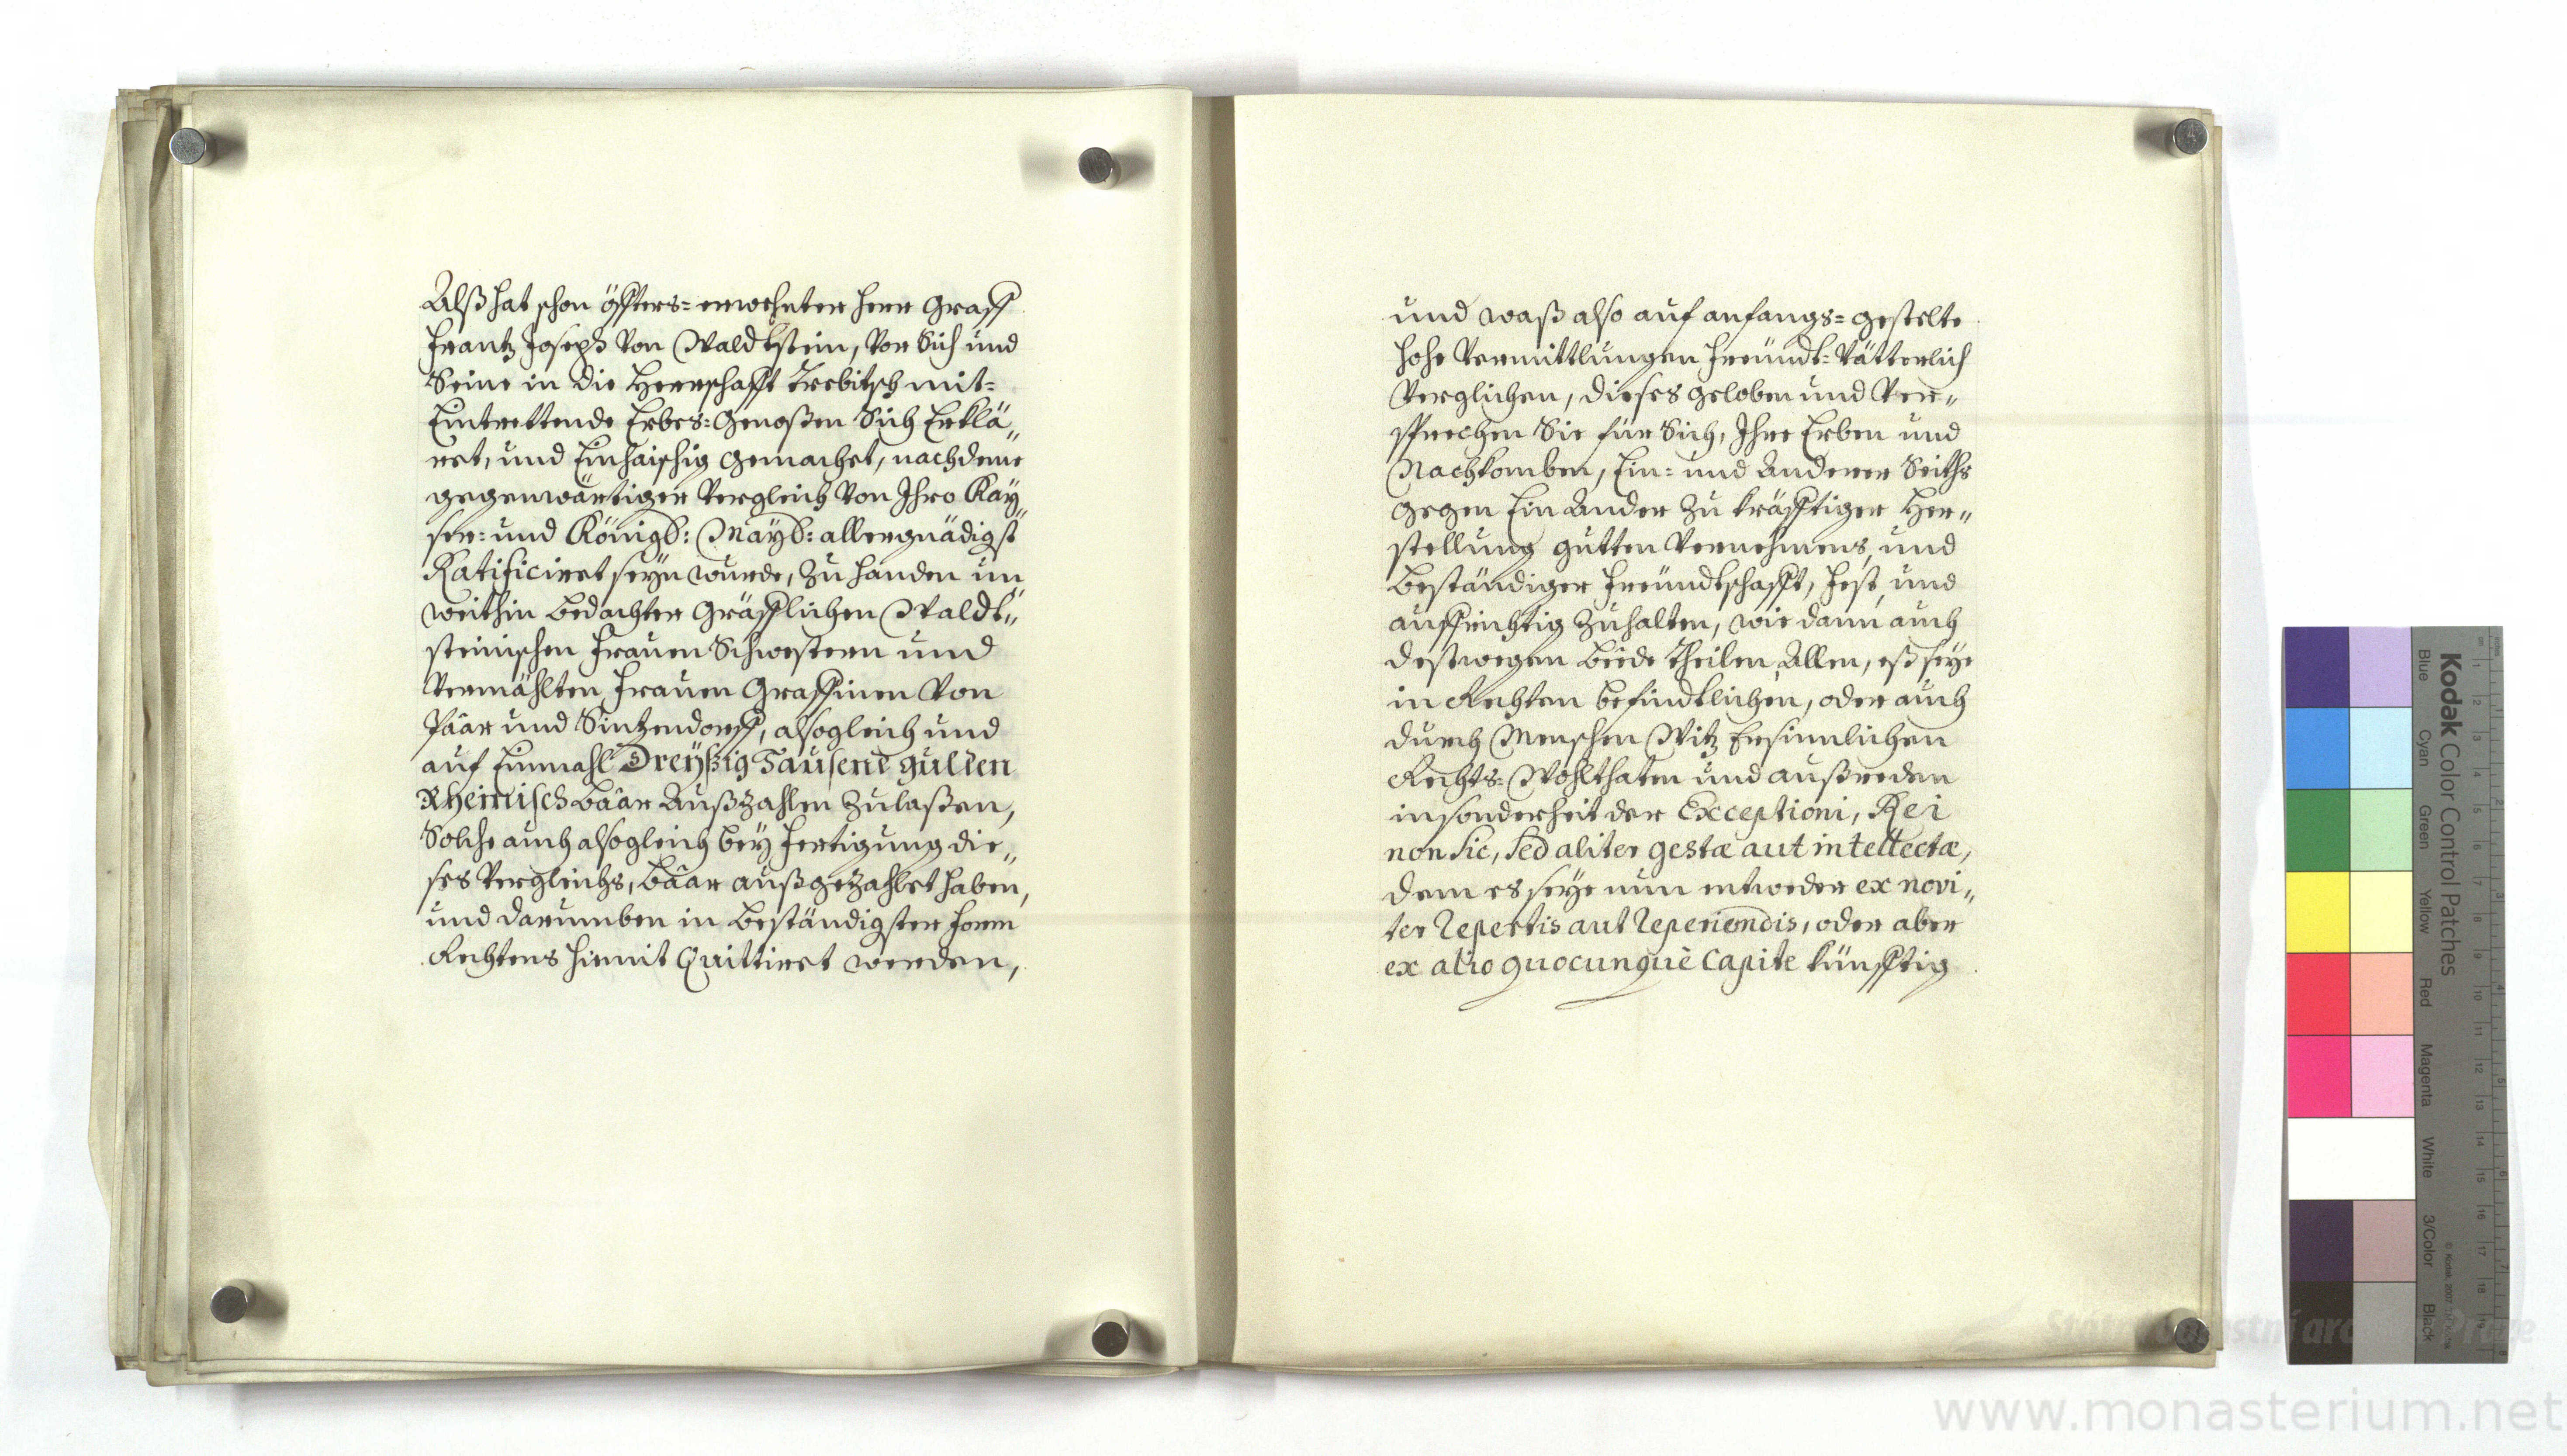 Alß hat schon öffters= erwehnter Herr Graff
Frantz Joseph von Waldtstein, vor Sich und
Seine in die Herrschafft Trebitsch mit=
Eintrettende Erbes= Genoßen Sich Erklä„
ret, und Einhaischig gemachet, nachdeme
gegenwärtiger Vergleich von Ihro Kay„
ser= und Königl: Mayt: allergnädigst
Ratificiret seyn wurde, zu handen un„
weithin bedachter Gräfflichen Waldt„
steinischen Frauen Schwestern und
Vermählten Frauen Graffinen von
Päar und Sintzendorff, alsogleich und
auf Einmahl Dreyßig Tausend gulden
Rheinisch bäar Außzahlen zulaßen,
Solche auch alsogleich bey Fertigung die„
ses Vergleichs, bäar außgezahlet haben,
und darumben in beständigster Form
Rechtens hiemit Quittiret werden,
und waß also auf anfangs= gestelte
hohe Vermittlungen Freündt= Vätterlich
Verglichen, dieses geloben und Ver„
sprechen Sie für Sich, Ihre Erben und
Nachkomben, Ein= und Anderer Seiths
gegen Ein Ander zu kräfftiger Her„
stellung gutten Vernehmens, und
beständiger Freündtschafft, Fest, und
auffrichtig zuhalten, wie dann auch
destwegen beede theilen Allen, eß seye
in Rechten befindtlichen, oder auch
durch Menschen Witz Ersinnlichen
Rechts= Wohlthaten und außreden
insonderheit der Exceptioni, Rei
non sic, sed aliter gestæ aut intellectæ,
dem es seye nun entweder ex novi„
ter repertis aut reperiendis, oder aber
ex alio quocunque Capite künfftig
Kodak Color Control Patches
Blue Cyan Green Yellow Red Magenta White 3/Color Black
www.monasterium.net